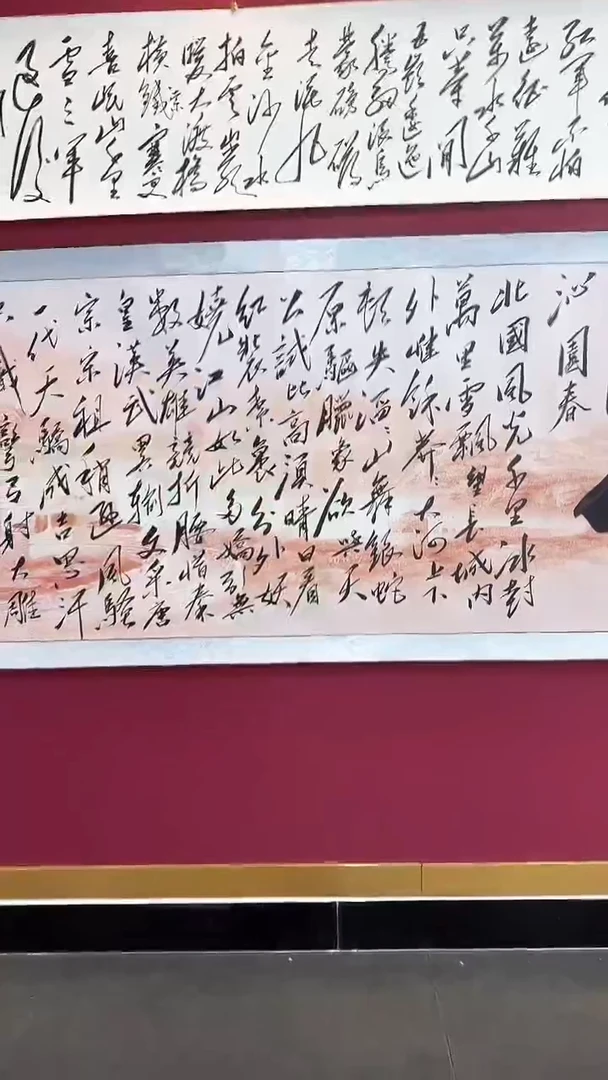 红軍不怕
遠征難
萬水千山
只等閒
五嶺逶迤
騰細浪烏
蒙磅礴
走泥丸
金沙水
拍雲崖
暖大渡橋
橫鐵索寒更
喜岷山千里
雪三軍
過後
沁園春
北國風光千里冰封
萬里雪飄望長城内
外惟餘莽々大河上下
頓失滔々山舞銀蛇
原驅臘象欲與天
公試比高須晴日看
紅裝素裹分外妖
嬈江山如此多嬌引無
數英雄競折腰惜秦
皇漢武略輸文采唐
宗宋祖稍遜風騷
一代天驕成吉思汗
只識彎弓射大雕